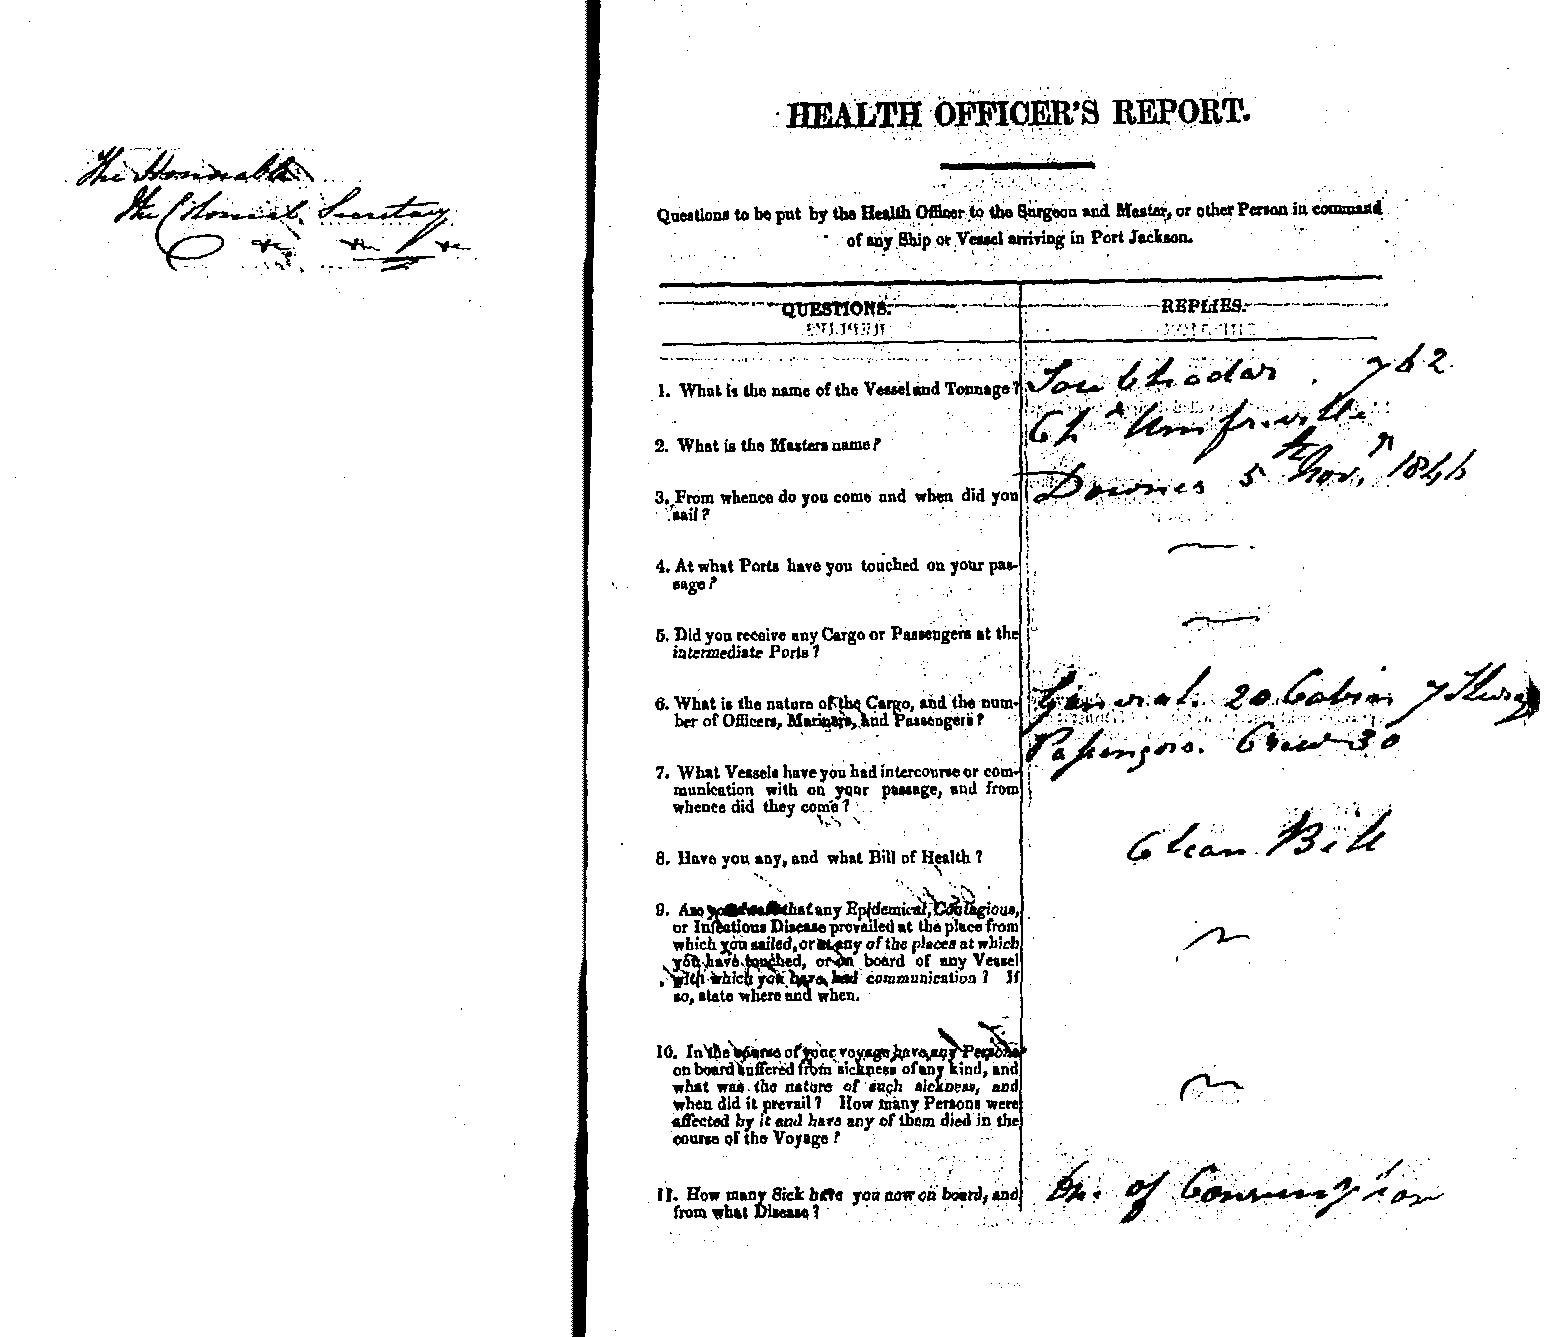 The Honorable
The Colonial Secretary
&c &c &c
HEALTH OFFICER'S REPORT.
Questions to be put by the Health Officer to the Surgeon and Master, or other Person in command
of any Ship or Vessel arriving in Port Jackson.
QUESTIONS.
REPLIES.
1. What is the name of the Vessel and Tonnage?
762
2. What is the Masters name?
Chs Umfreville
3. From whence do you come and when did you
sail?
Downes 5th Novr 1846
4. At what Ports have you touched on your pas-
sage?
5. Did you receive any Cargo or Passengers at the
intermediate Ports?
6. What is the nature of the Cargo, and the num-
ber of Officers, Mariners, and Passengers?
General. 20 Cabin 7 Steerage
Passengers. Crew 30
7. What Vessels have you had intercourse or com-
munication with on your passage, and from
whence did they come?
8. Have you any, and what Bill of Health?
Clean Bill
9. Are you aware that any Epidemical, Contagious,
or Infectious Disease prevailed at the place from
which you sailed, or at any of the places at which
you have touched, or on board of any Vessel
with which you have had communication? If
so, state where and when.
10. In the course of your voyage have any Persons
on board suffered from sickness of any kind, and
what was the nature of such sickness, and
when did it prevail? How many Persons were
affected by it and have any of them died in the
course of the Voyage?
11. How many Sick have you now on board, and
from what Disease?
On. of Consumption